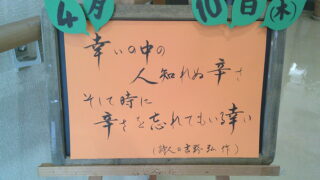 4月 10日(木)
幸いの中の
人知れぬ辛さ
そして時に
辛さを忘れてもいる幸い
(詩人の吉野弘 作)